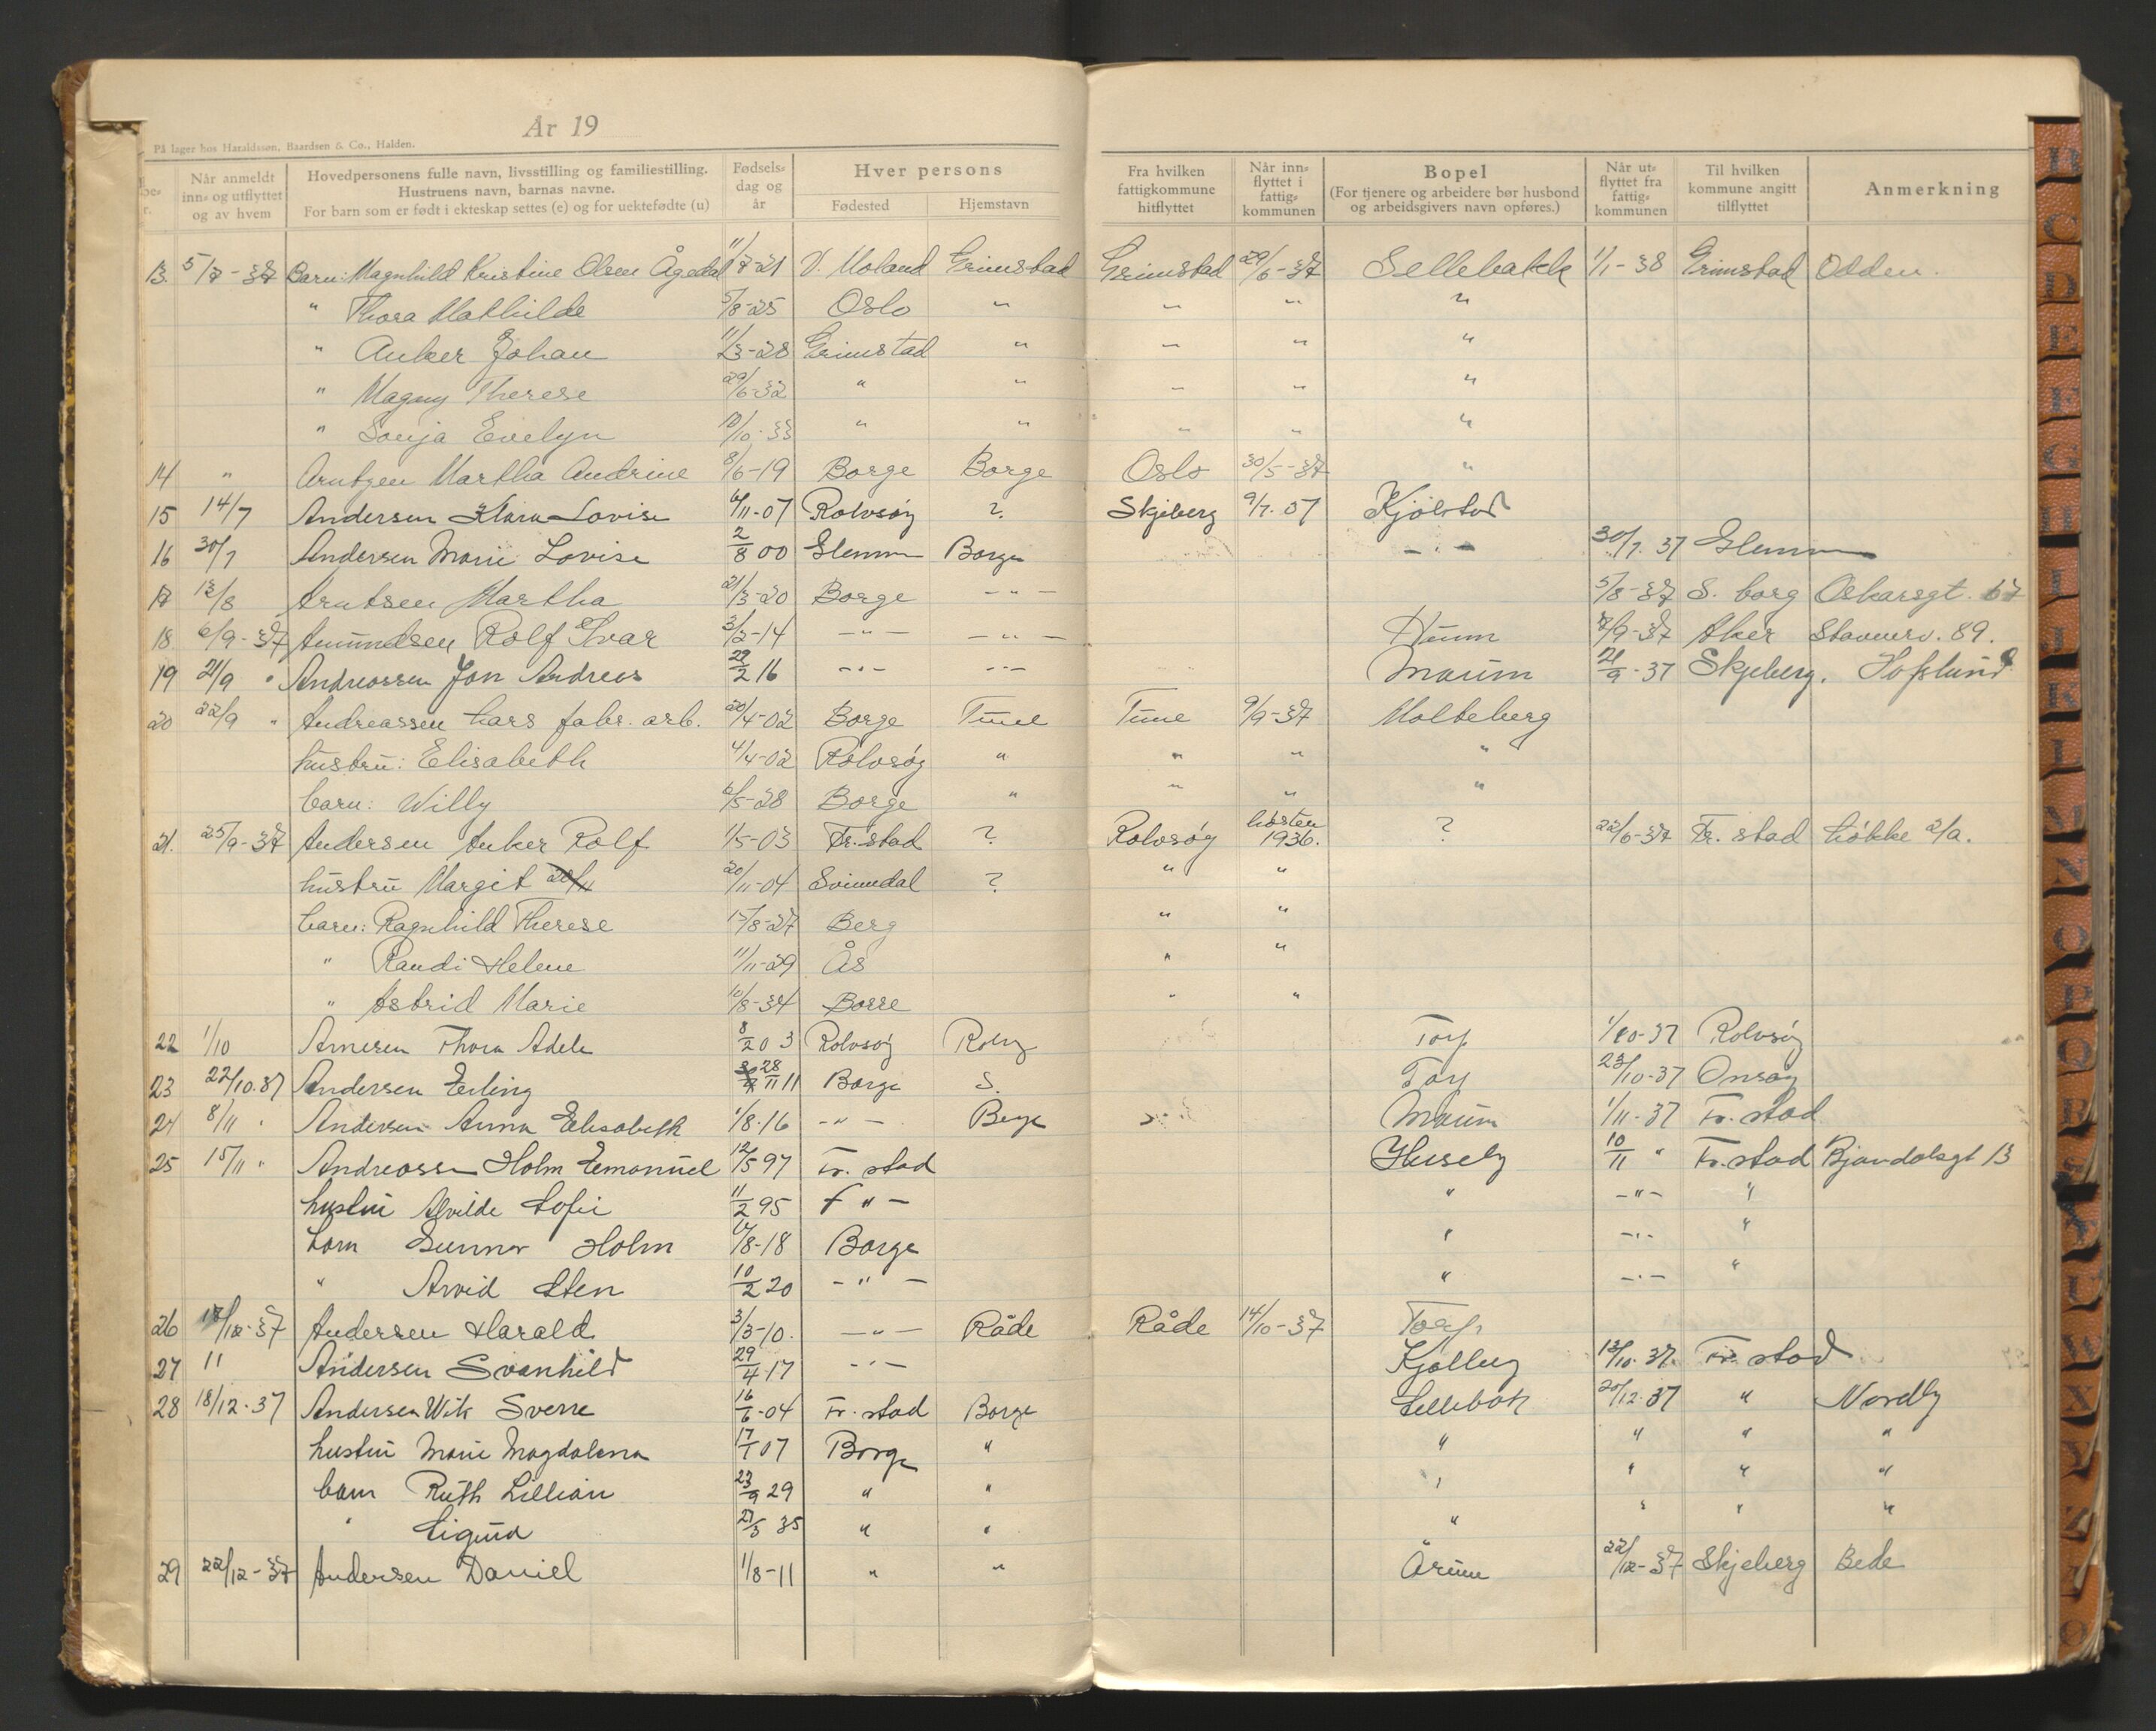 År 19
På lager hos Haraldssøn, Baardsen & Co., Halden.
Når anmeldt inn- og utflyttet og av hvem
Hovedpersonens fulle navn, livsstilling og familiestilling. Hustruens navn, barnas navne. For barn som er født i ekteskap settes (e) og for uektefødte (u)
Fødsels- dag og år
Hver persons
Fødested
Hjemstavn
Fra hvilken fattigkommune hitflyttet
Når inn- flyttet i fattig- kommunen
Bopel (For tjenere og arbeidere bør husbond og arbeidsgivers navn opføres.)
Når ut- flyttet fra fattig- kommunen
Til hvilken kommune angitt tilflyttet
Anmerkning
13. 5/7-37 Barn: Magnhild Kristine Olsen Ågedal 11/7-21 V. Moland Grimstad Grimstad 29/6-37 Sellebakk 1/1-38 Grimstad Odden.
" Thora Mathilde 5/8-25 Oslo " " " "
" Anker Johan 11/3-28 Grimstad " " " "
" Magny Therese 29/6-32 " " " " "
" Sonja Evelyn 10/10-33 " " " " "
14 " Arntzen Martha Andrine 8/6-19 Borge Borge Oslo 30/5-37 "
15 14/7 Andersen Klara Lovise 6/11-07 Rolvsøy ? Skjeberg 9/7.07 Kjølstad
16 30/7 Andersen Marie Lovise 2/8 00 Glemm Borge -"- 30/7.37 Glemm
17 12/8 Arntsen Martha 21/3-20 Borge -"- 5/8-37 S. borg Oskarsgt. 67
18 6/9-37 Amundsen Rolf Ivar 3/3-14 -"- -"- Hunn 7/9-37 Aker Stavnerv. 89.
19 21/9 " Andreassen Jon Andreas 29/2 16 -"- -"- Moum 21/9-37 Skjeberg. Hafslund
20 22/9 " Andreassen Lars fabr. arb. 20/4-02 Borge Tune Tune 9/9-37 Molteberg
hustru: Elisabeth 4/4-02 Rolvsøy " " " "
barn: Willy 6/5-28 Borge " " " "
21. 25/9-37 Andersen Anker Rolf 1/5-03 Fr. stad ? Rolvsøy høsten 1936. ? 22/6-37 Fr. stad Løkke 2/a.
hustru Margit 20/11-04 Svinndal ? " "
barn: Ragnhild Therese 15/8-27 Berg " "
" Randi Helene 11/11-29 Ås " "
" Astrid Marie 10/8-34 Borre " "
22 1/10 Arnesen Thora Adele 8/2 03 Rolvsøy Rolvsøy Torp 1/10-37 Rolvsøy
23 22/10.37 Andersen Erling 28/11 11 Borge S. Torp 23/10-37 Onsøy
24 8/11 " Andersen Anna Elisabeth 1/8.16 -"- Borge Moum 1/11-37 Fr. stad
25 15/11 " Andreassen Holm Emanuel 12/5 97 Fr. stad Huseby 10/11 " Fr. stad Bjørndalsgt 13
hustru Alvilde Sofie 11/2 95 -"- " -"- "
barn Gunnar Holm 17/8-18 Borge " -"- "
" Arvid Sten 10/2 20 -"- " -"- "
26 18/12-37 Andersen Harald 3/3-10. -"- Råde Råde 14/10-37 Torp.
27 11 Andersen Svanhild 29/4 17 -"- Kjølberg 13/10.37. Fr. stad
28 18/12.37 Andersen Wik Sverre 16/6-04 Fr. stad Borge Sellebak 20/12.37 " Nordby
hustru Marie Magdalena 17/1 07 Borge " " " " "
barn Ruth Lillian 23/9 29 " " " " " "
" Sigurd 27/3 35 " " " " " "
29 22/12-37 Andersen Daniel 1/8-11 " " Årum 22/12-37 Skjeberg Bede